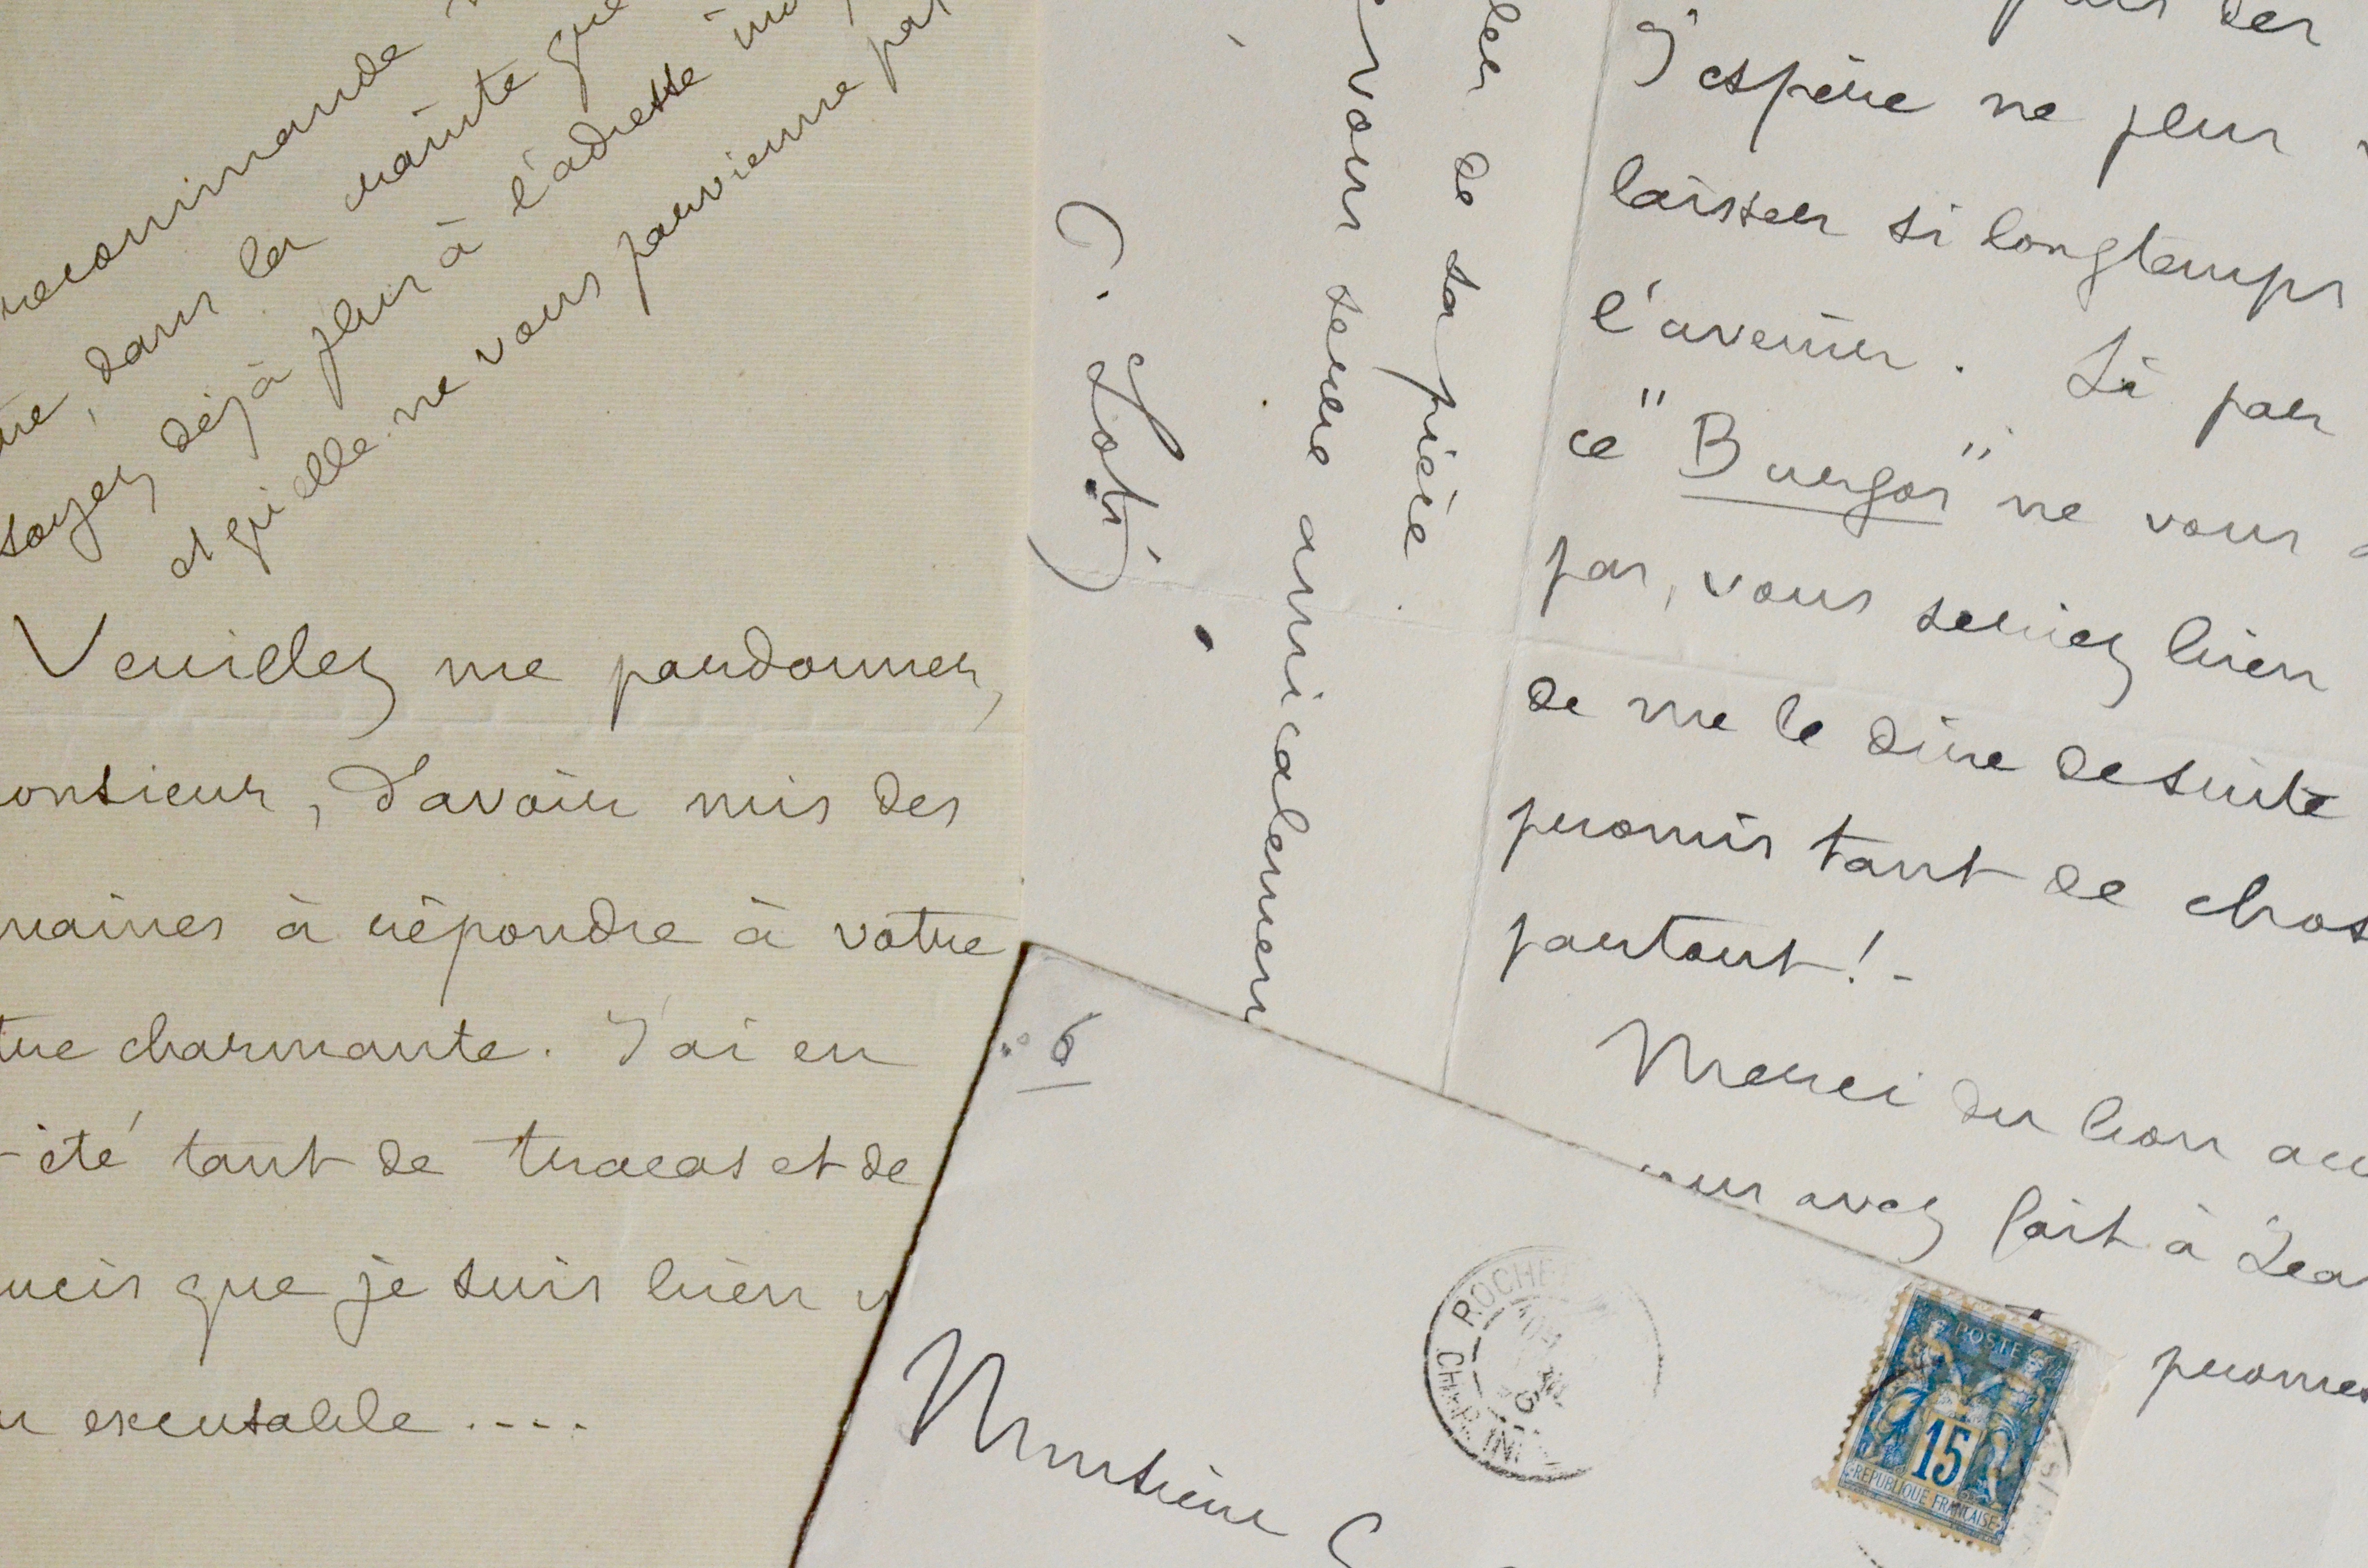 recommande
dans la crainte que
soyez déjà plus à l'adresse
et qu'elle ne vous parvienne pas
Veuillez me pardonner,
onsieur, d'avoir mis des
maines à répondre à votre
tre charmante. J'ai eu
été tant de tracas et de
ucis que je suis bien
excusable....
de sa pièce
vous serre amicalemen
Loti
des
J'espère ne plus
laisser si longtemps
l'avenir. Si par
ce "Burgos" ne vous
pas, vous seriez bien
de me le dire de suite
promis tant de chos
partout!-
Merci du bon acc
avez fait à
promes
6
Monsieur
ROCHE
CHAR. IN
POSTE
15
REPUBLIQUE FRANCAISE